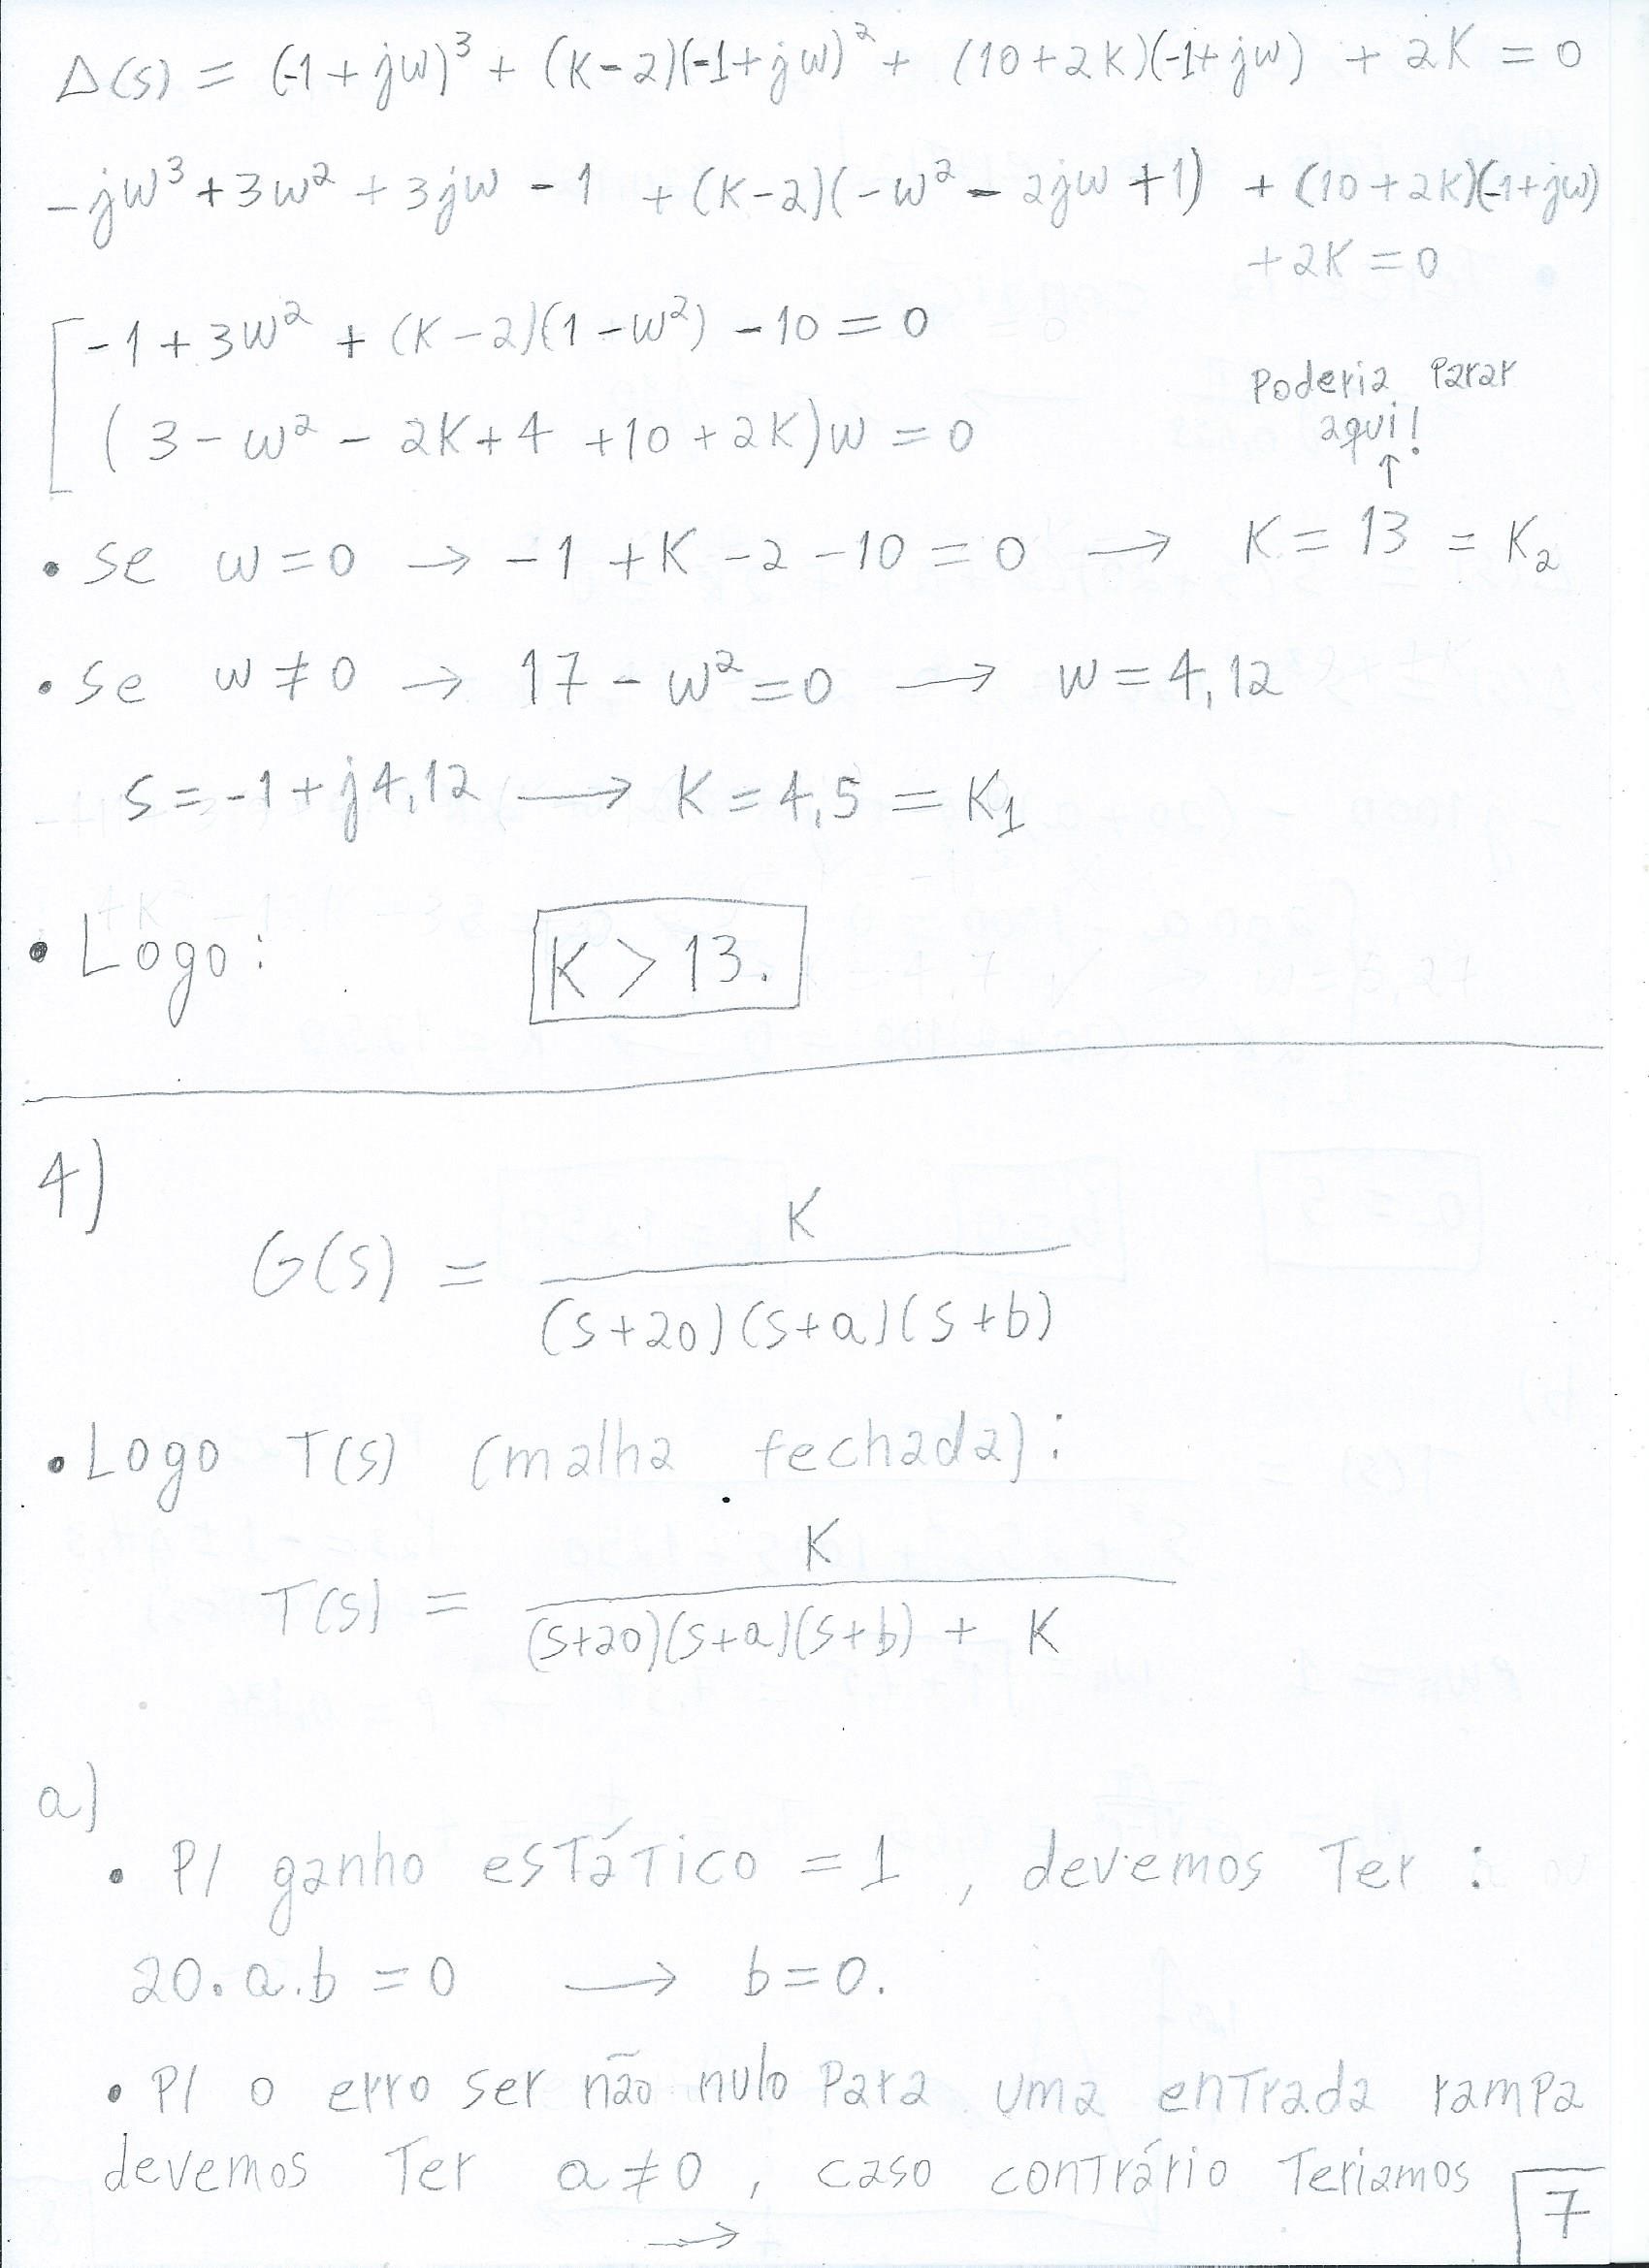 Δ(s) = (-1+jω)³ + (K-2)(-1+jω)² + (10+2K)(-1+jω) + 2K = 0
-jω³ + 3ω² + 3jω - 1 + (K-2)(-ω² - 2jω + 1) + (10+2K)(-1+jω)
+2K = 0
-1 + 3ω² + (K-2)(1-ω²) - 10 = 0
(3 - ω² - 2K + 4 + 10 + 2K)ω = 0
Poderia Parar
aqui!
↑
• Se ω = 0 → -1 + K - 2 - 10 = 0 → K = 13 = K₂
• Se ω ≠ 0 → 17 - ω² = 0 → ω = 4,12
S = -1 + j4,12 → K = 4,5 = K₁
• Logo: K > 13.
4)
G(s) = K / (s+20)(s+a)(s+b)
• Logo T(s) (malha fechada):
T(s) = K / (s+20)(s+a)(s+b) + K
a)
• P/ ganho estático = 1, devemos Ter:
20.a.b = 0 → b = 0.
• P/ o erro ser não nulo Para uma entrada rampa
devemos Ter a ≠ 0, caso contrário Teriamos
→
7